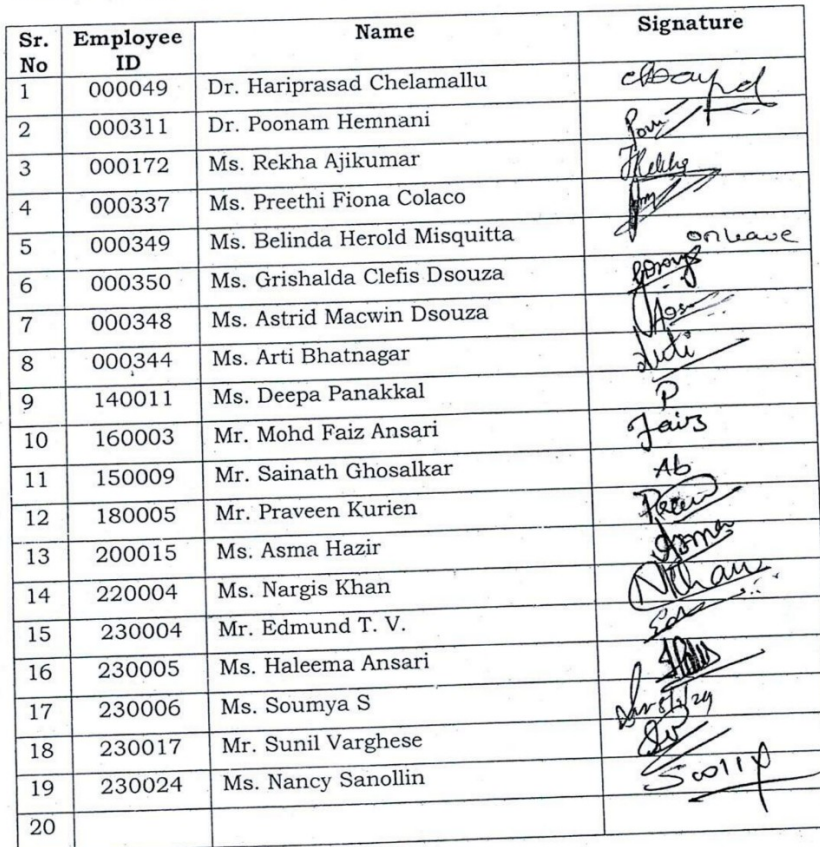 Sr. No Employee ID Name Signature
1 000049 Dr. Hariprasad Chelamallu
2 000311 Dr. Poonam Hemnani
3 000172 Ms. Rekha Ajikumar
4 000337 Ms. Preethi Fiona Colaco
5 000349 Ms. Belinda Herold Misquitta on leave
6 000350 Ms. Grishalda Clefis Dsouza
7 000348 Ms. Astrid Macwin Dsouza
8 000344 Ms. Arti Bhatnagar
9 140011 Ms. Deepa Panakkal P
10 160003 Mr. Mohd Faiz Ansari Faiz
11 150009 Mr. Sainath Ghosalkar Ab
12 180005 Mr. Praveen Kurien
13 200015 Ms. Asma Hazir
14 220004 Ms. Nargis Khan NKhan
15 230004 Mr. Edmund T. V.
16 230005 Ms. Haleema Ansari
17 230006 Ms. Soumya S
18 230017 Mr. Sunil Varghese
19 230024 Ms. Nancy Sanollin
20